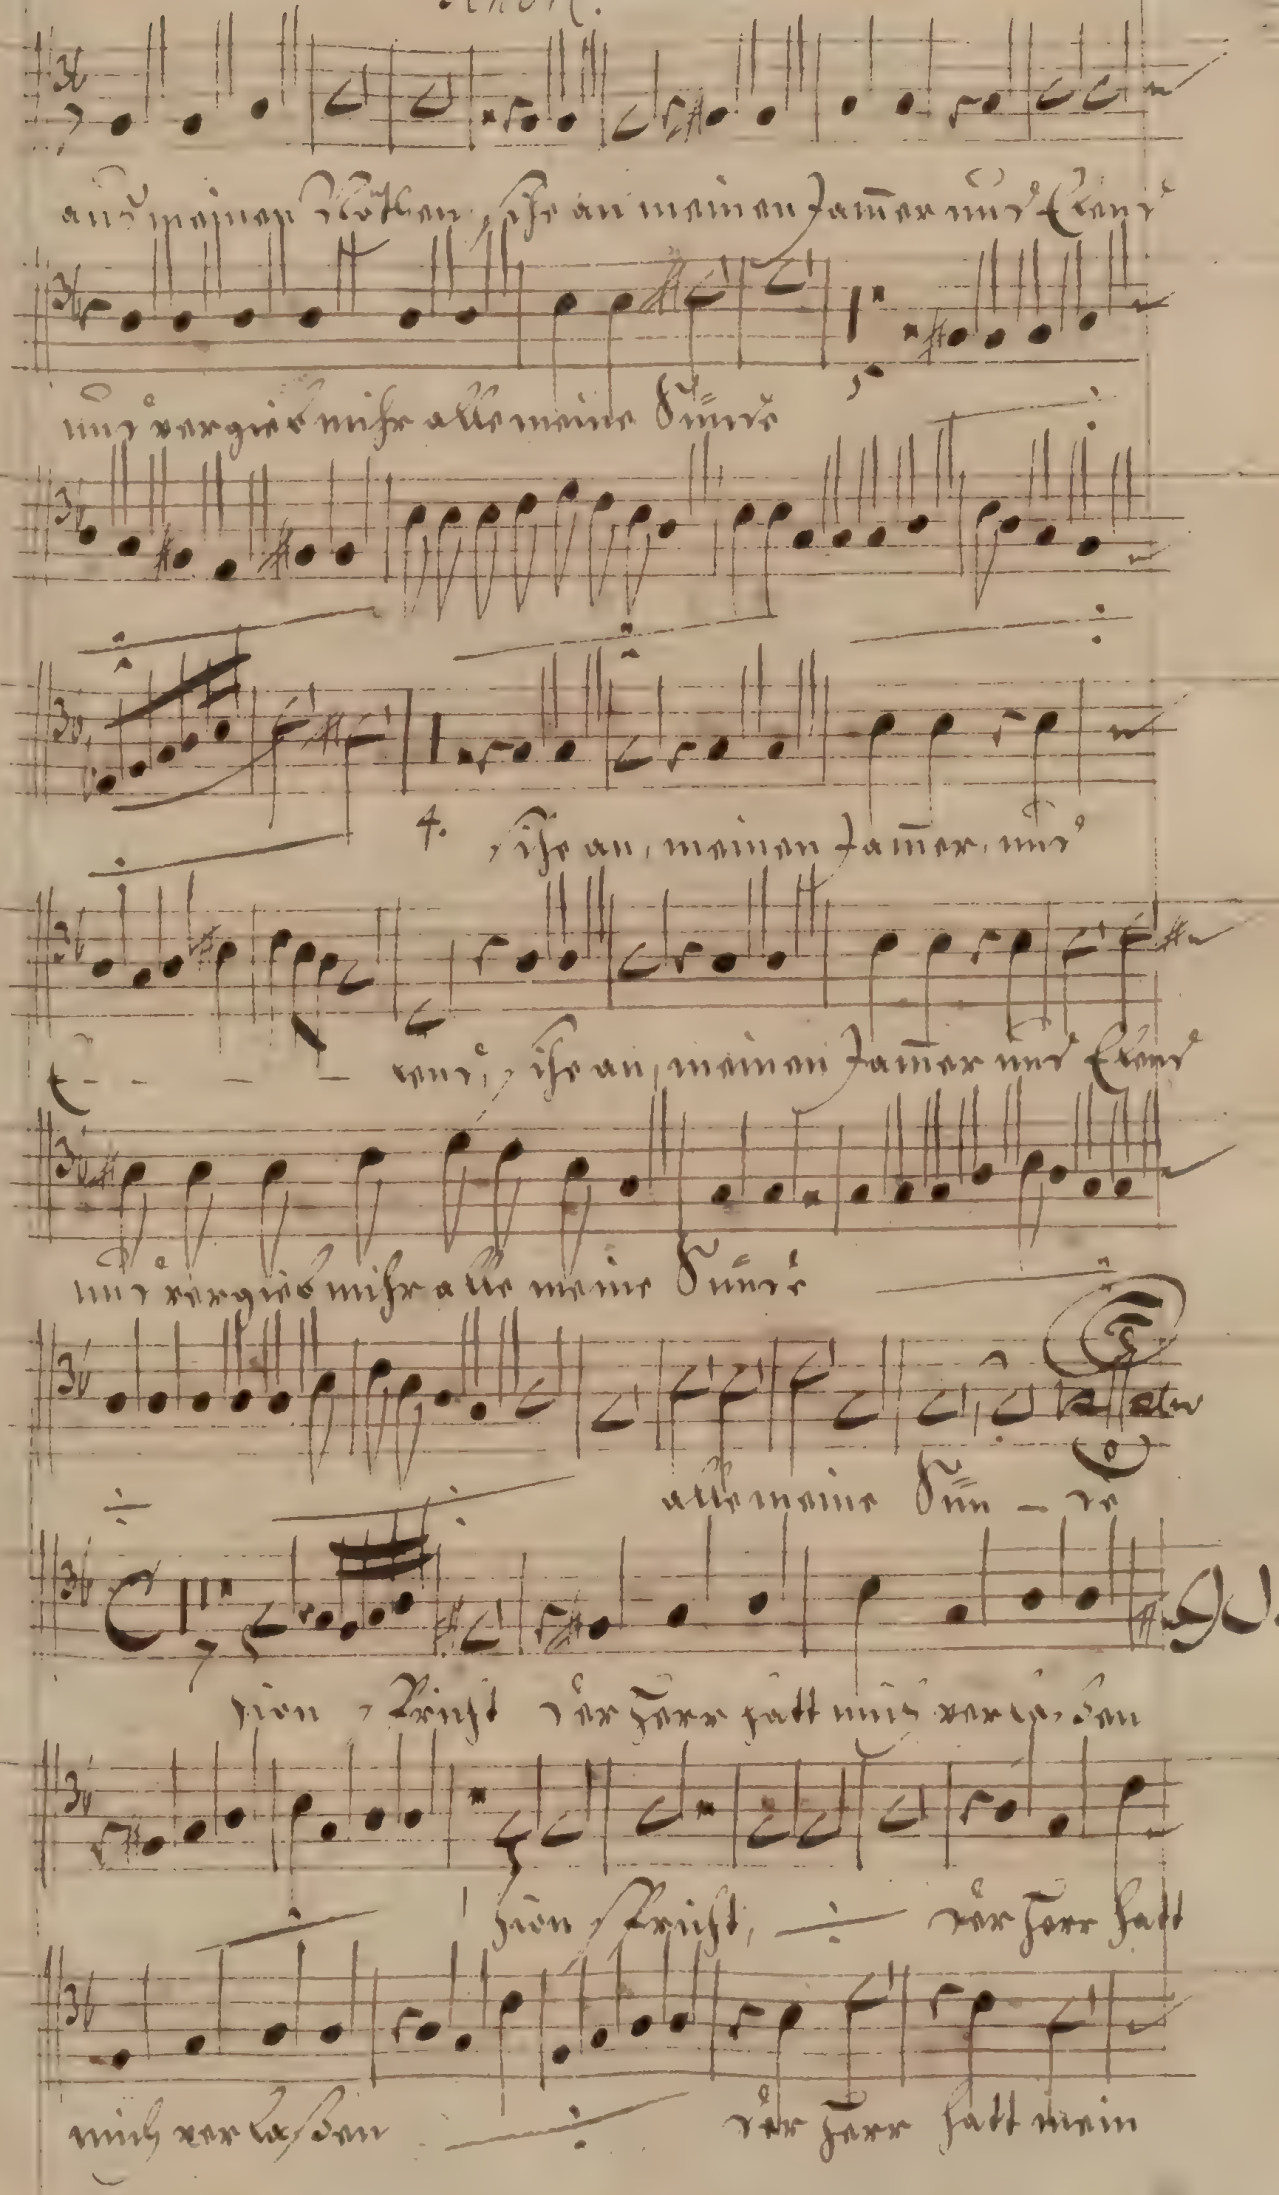 auß meinen Nöthen, sihe an meinen Jam̄er und Elend
und vergieb mihr alle meine Sünde
4. sihe an, meinen Jam̄er, und
E - - - - lend, sihe an, meinen Jam̄er und Elend
und vergieb mihr alle meine Sünde
alle meine Sün - de
Zion spricht der Herr hatt mich verlaßen
Zion spricht, der Herr hatt
mich verlaßen der Herr hatt mein